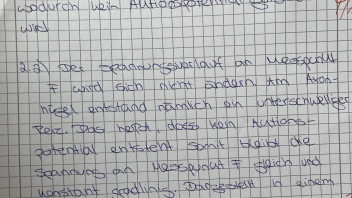 wodurch kein Aktionspotential
wird
2.2) Der Spannungsverlauf an Messpunkt
F wird sich nicht ändern. Am Axon-
hügel entstand nämlich ein unterschwelliger
Reiz. Das heißt, dass kein Aktions-
potential entsteht somit bleibt die
Spannung an Messpunkt F gleich und
konstant gradlinig. Dargestellt in einem